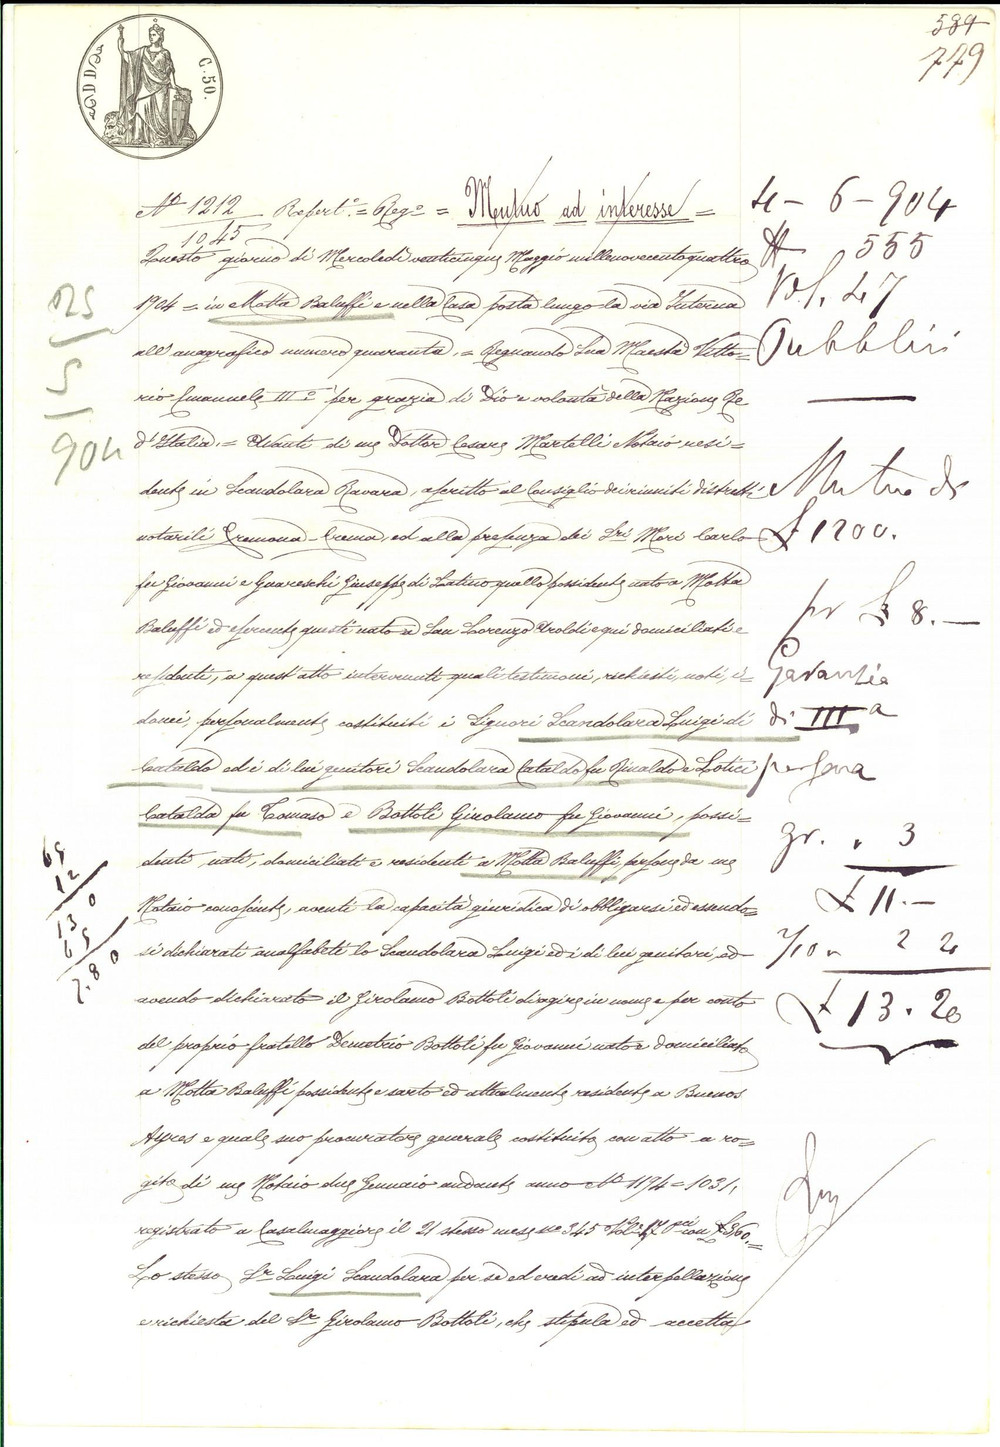 589
779
C. 50.
N° 1212 Repert.° = Reg° = Mutuo ad interesse =
1045
Questo giorno di Mercoledì venticinque Maggio millenovecentoquattro
1904 = in Motta Baluffi e nella Casa posta lungo la via Interna
all'anagrafico numero quaranta. = Regnando Sua Maestà Vitto=
rio Emanuele III° per grazia di Dio e volontà della Nazione Re
d'Italia. = Avanti di me Dottor Cesare Martelli Notaio resi=
dente in Scandolara Ravara, ascritto al Consiglio dei riuniti distretti
notarili Cremona-Crema, ed alla presenza dei Sri Mori Carlo
fu Giovanni e Guareschi Giuseppe di Latino quello possidente nato a Motta
Baluffi ed esercente questi nato a San Lorenzo Aroldi e qui domiciliati e
residenti, a quest'atto intervenuti quali testimoni, richiesti, noti, i=
donei, personalmente costituiti i Signori Scandolara Luigi di
Cataldo ed i di lui genitori Scandolara Cataldo fu Rinaldo e Lotici
Catalda fu Tomaso e Bottoli Girolamo fu Giovanni, possi=
denti nati, domiciliati e residenti a Motta Baluffi, persone da me
Notaio conosciute, aventi la capacità giuridica di obbligarsi ed essendo=
si dichiarati analfabeti lo Scandolara Luigi ed i di lui genitori, ed
avendo dichiarato il Girolamo Bottoli di agire in nome e per conto
del proprio fratello Demetrio Bottoli fu Giovanni nato e domiciliato
a Motta Baluffi possidente e sarto ed attualmente residente a Buenos
Ayres e quale suo procuratore generale costituito con atto a ro=
gito di me Notaio due Gennaio andante anno N° 1174 = 1031,
registrato a Casalmaggiore il 21 stesso mese n° 345 Vol. 47 con £ 3,60. =
Lo stesso Sr Luigi Scandolara per sé ed eredi ad interpellazione
e richiesta del Sr Girolamo Bottoli, che stipula ed accetta
4 - 6 - 904
N 555
Vol. 47
Pubblici
Mutuo di
£ 1200.
per £ 8. —
Garanzia
di IIIa
persona
gr. " 3
£ 11. —
2/10 " 2 20
£ 13. 20
25
5
904
65
12
130
65
7.80